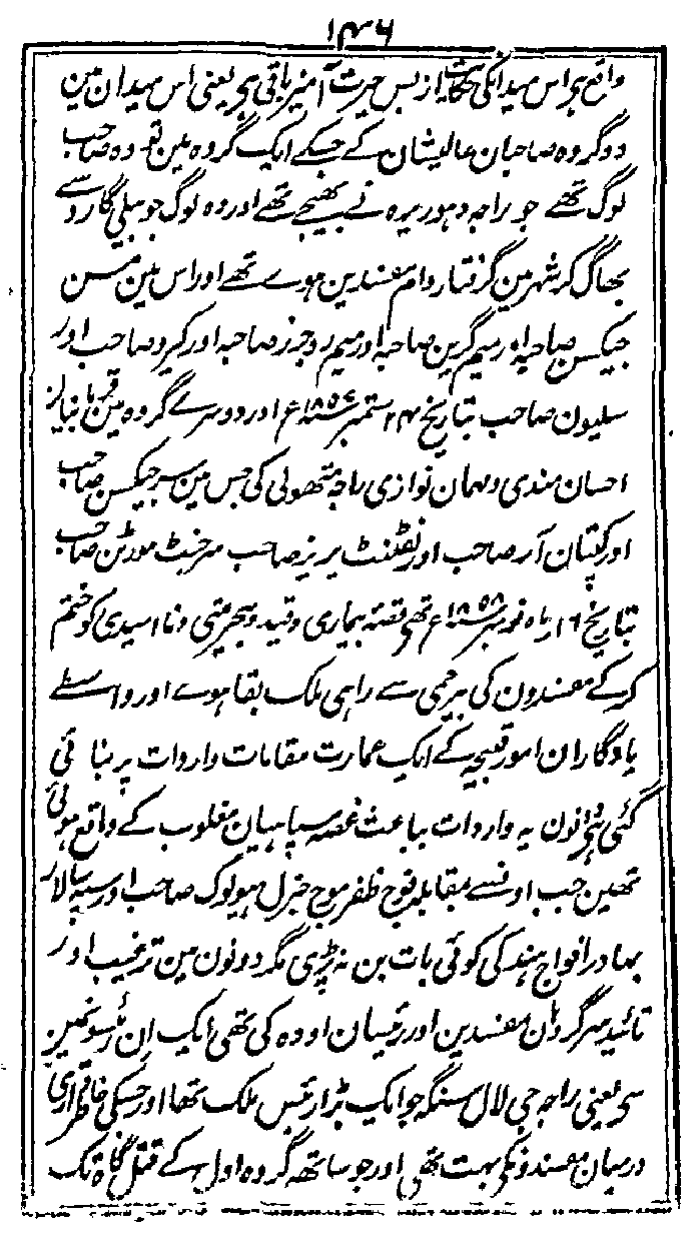 ۱۴۶
واقع ہی اس میدانکی حکایت از بس حیرت آمیز باقی ہی یعنی اس میدان مین
دو گروہ صاحبان عالیشان کے جسکے ایک گروہ مین تو وہ صاحب
لوگ تھے جو راجہ دہورہرہ نے بھیجے تھے اور وہ لوگ جو بیلی گارد سے
بھاگ کر شہر مین گرفتار دام مفسدین ہوے تھے اور اس مین مسن
جیکسن صاحبہ اور میم گرین صاحبہ اور میم روجرز صاحبہ اور کیرو صاحب اور
سلیون صاحب بتاریخ ۲۴ ستمبر ۱۸۵۷ع اور دوسرے گروہ مین
احسان مندی و مہمان نوازی راجہ متھولی کی جس مین سر جیکسن صاحب
اور کپتان آر صاحب اور لفٹنٹ بریز صاحب سرجنٹ مورٹن صاحب
بتاریخ ۱۶ ماہ نومبر ۱۸۵۸ع تھی قصۂ بیماری و قید و بیحرمتی و نا امیدی کو ختم
کر کے مفسدون کی بیرحمی سے راہی ملک بقا ہوے اور واسطے
یادگاران امور قبیحہ کے ایک عمارت مقامات واردات پر بنائی
گئی ہی دونون یہ واردات بباعث غصہ سپاہیان مغلوب کے واقع ہوئی
تھین جب اونسے بمقابلہ فوج ظفر موج جنرل ہولوک صاحب اور سپہ سالار
بہادر افواج ہند کی کوئی بات بن نہ پڑی مگر دونون مین ترغیب اور
تائید سرگروہان مفسدین اور رئیسان اودہ کی تھی ایک ان رئیسونمین
سی یعنی راجہ جی لال سنگہ جو ایک بڑا رئیس ملک تھا اور جسکی خاطرداری
درمیان مفسدونکی بہت تھی اور جو ساتھہ گروہ اول کے قتل گاہ تک